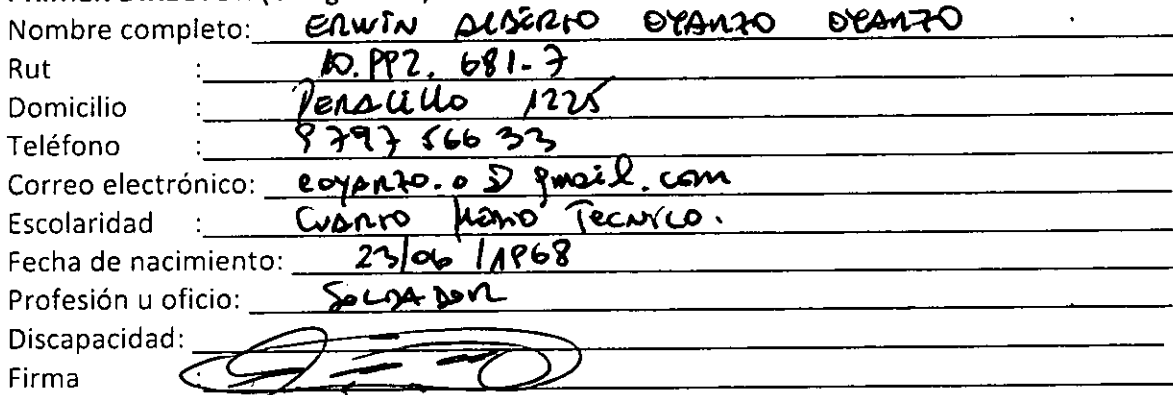 Nombre completo: ERWIN ALBERTO OYARZO OYARZO
Rut : 10.992.681-7
Domicilio : PERALILLO 1225
Teléfono : 9797 566 33
Correo electrónico: eoyarzo.o@gmail.com
Escolaridad : CUARTO MEDIO TECNICO.
Fecha de nacimiento: 23/06/1968
Profesión u oficio: SOLDADOR
Discapacidad:
Firma :